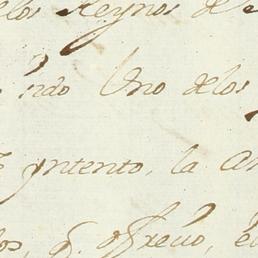 elos Reynos de
ndo Uno delos
yntento, la
los, q. ofrecio, e